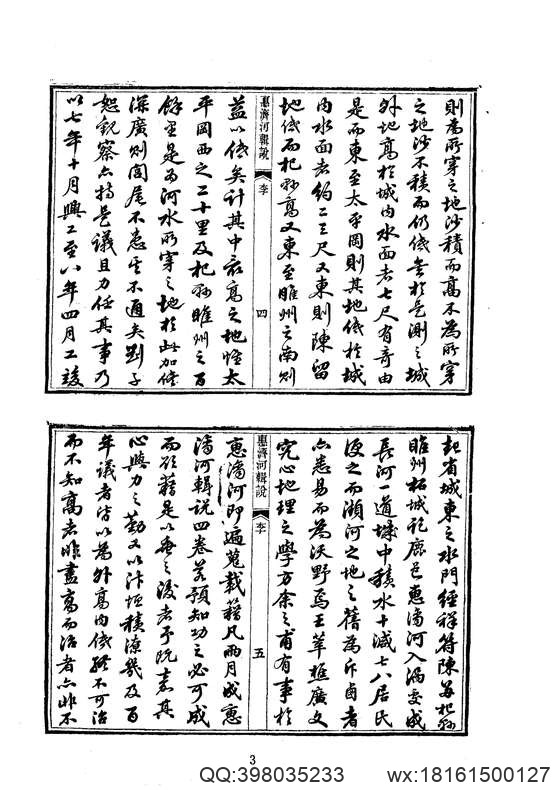 則為所穿之地沙積而高不為所穿
之地沙不積而仍低無於是測之城
外地高於城内水面者七尺有奇由
是而東至太平岡則其地低於城
内水面者約二三尺又東則陳留
地低而杞縣高又東至睢州之南則
惠濟河輯說
李
四
益以低矣計其中最高之地惟太
平岡西之二十里及杞縣睢州之百
餘里是為河水所穿之地於此加倍
深廣則閭尾不患其不通矣劉子
恕觀察亦持是議且力任其事乃
以七年十月興工至八年四月工竣
起省城東之水門經祥符陳留杞縣
睢州柘城訖鹿邑惠濟河入渦委成
長河一道城中積水十減七八居民
便之而瀕河之地之舊為斥鹵者
亦悉易而為沃野焉王莘樵廣文
究心地理之學方余之甫有事於
惠濟河輯說
李
五
惠濟河即遍蒐載籍凡兩月成惠
濟河輯說四卷若預知功之必可成
而欲藉是以垂之後者予既嘉其
心與力之勤又以汴垣積潦幾及百
年議者皆以為外高内低終不可治
而不知高者非盡高而治者亦非不
3
QQ:398035233
wx:18161500127